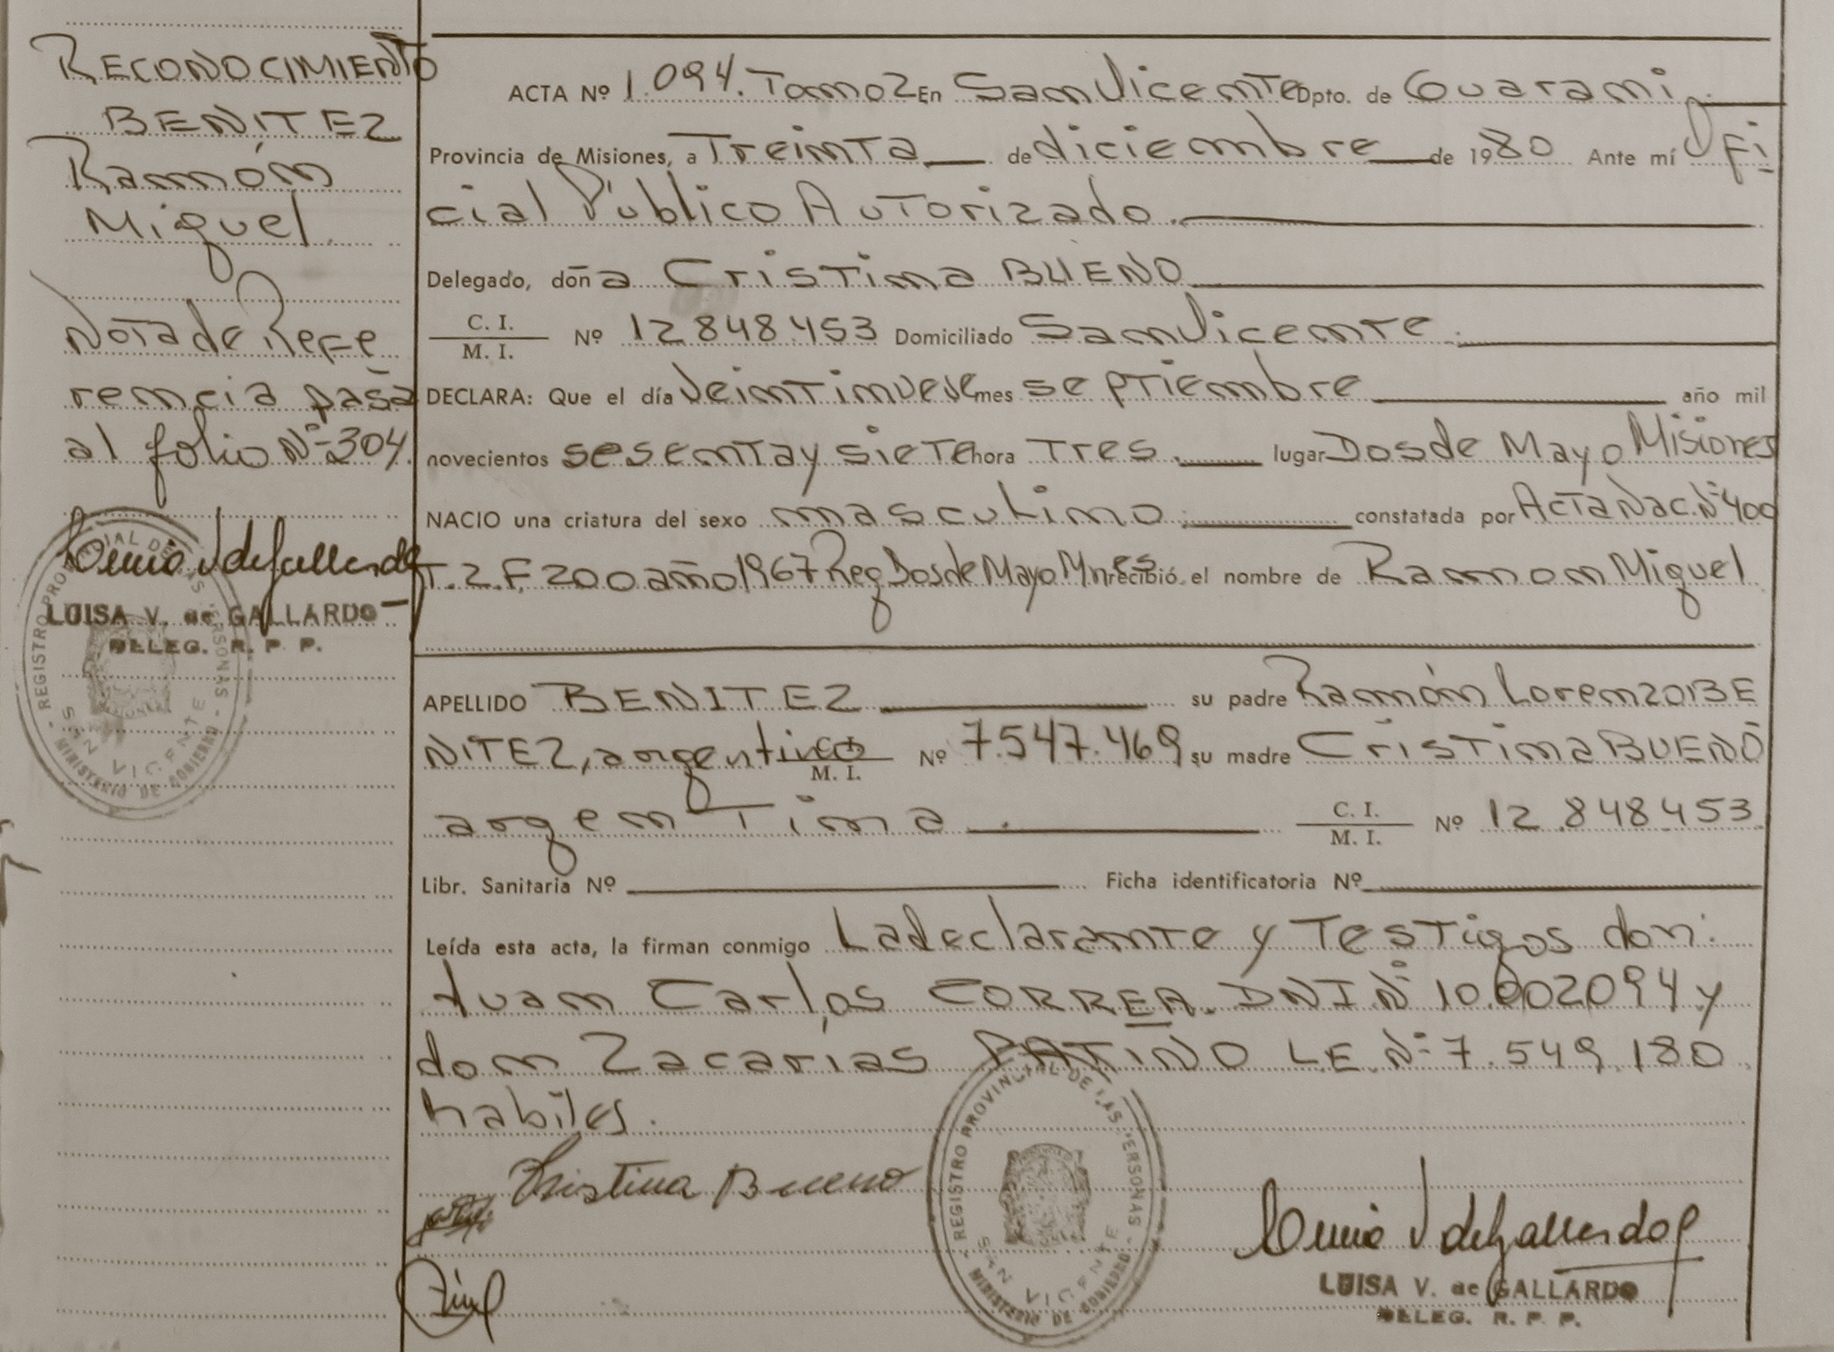 RECONOCIMIENTO
BENITEZ
Ramón
Miguel.
Nota de Refe
rencia pasa
al folio Nº 304.
LUISA V. de GALLARDO
DELEG. R. P. P.
REGISTRO PROVINCIAL DE LAS PERSONAS
SAN VICENTE
MINISTERIO DE GOBIERNO
ACTA Nº 1.094. Tomo 2 En San Vicente Dpto. de Guarani.
Provincia de Misiones, a Treinta de diciembre de 1980 Ante mí Ofi
cial Público Autorizado.
Delegado, doña Cristina BUENO
C. I. / M. I. Nº 12.848.453 Domiciliado San Vicente.
DECLARA: Que el día Veintinueve mes septiembre año mil
novecientos sesenta y siete hora Tres. lugar Dos de Mayo Misiones
NACIO una criatura del sexo masculino. constatada por Acta Nac. Nº 400
T. 2. F. 200 año 1967 Reg Dos de Mayo Mnes recibió el nombre de Ramon Miguel
APELLIDO BENITEZ su padre Ramón Lorenzo BE
NITEZ, argentino C. I. / M. I. Nº 7.547.469 su madre Cristina BUENO
argentina. C. I. / M. I. Nº 12.848.453
Libr. Sanitaria Nº Ficha identificatoria Nº
Leída esta acta, la firman conmigo La declarante y Testigos don:
Juan Carlos CORREA. DNI Nº 10.002094 y
don Zacarias PATIÑO L.E. Nº 7.549.180
habiles.
Cristina Bueno
REGISTRO PROVINCIAL DE LAS PERSONAS
SAN VICENTE
MINISTERIO DE GOBIERNO
LUISA V. de GALLARDO
DELEG. R. P. P.